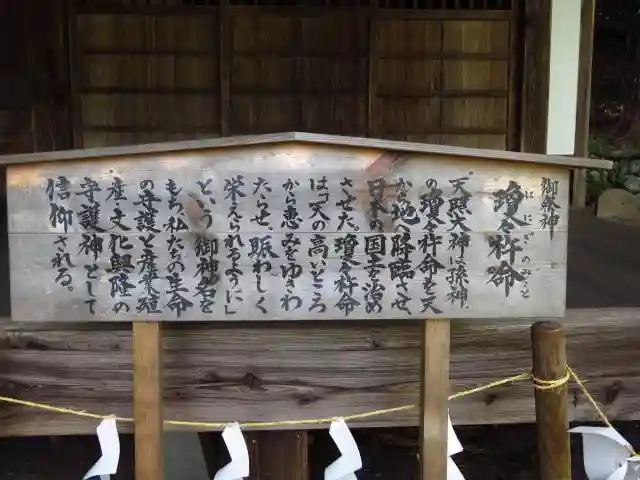 御祭神
ににぎのみこと
瓊々杵命
天照大神は孫神、
の瓊々杵命を天
から地へ降臨させ、
日本の国土を治め
させた。瓊々杵命
は「天の高いところ
から恵みをゆきわ
たらせ、賑わしく
栄えられるように」
という御神名を
もち、私たちの生命
の守護と産業殖
産・文化興隆の
守護神として
信仰される。